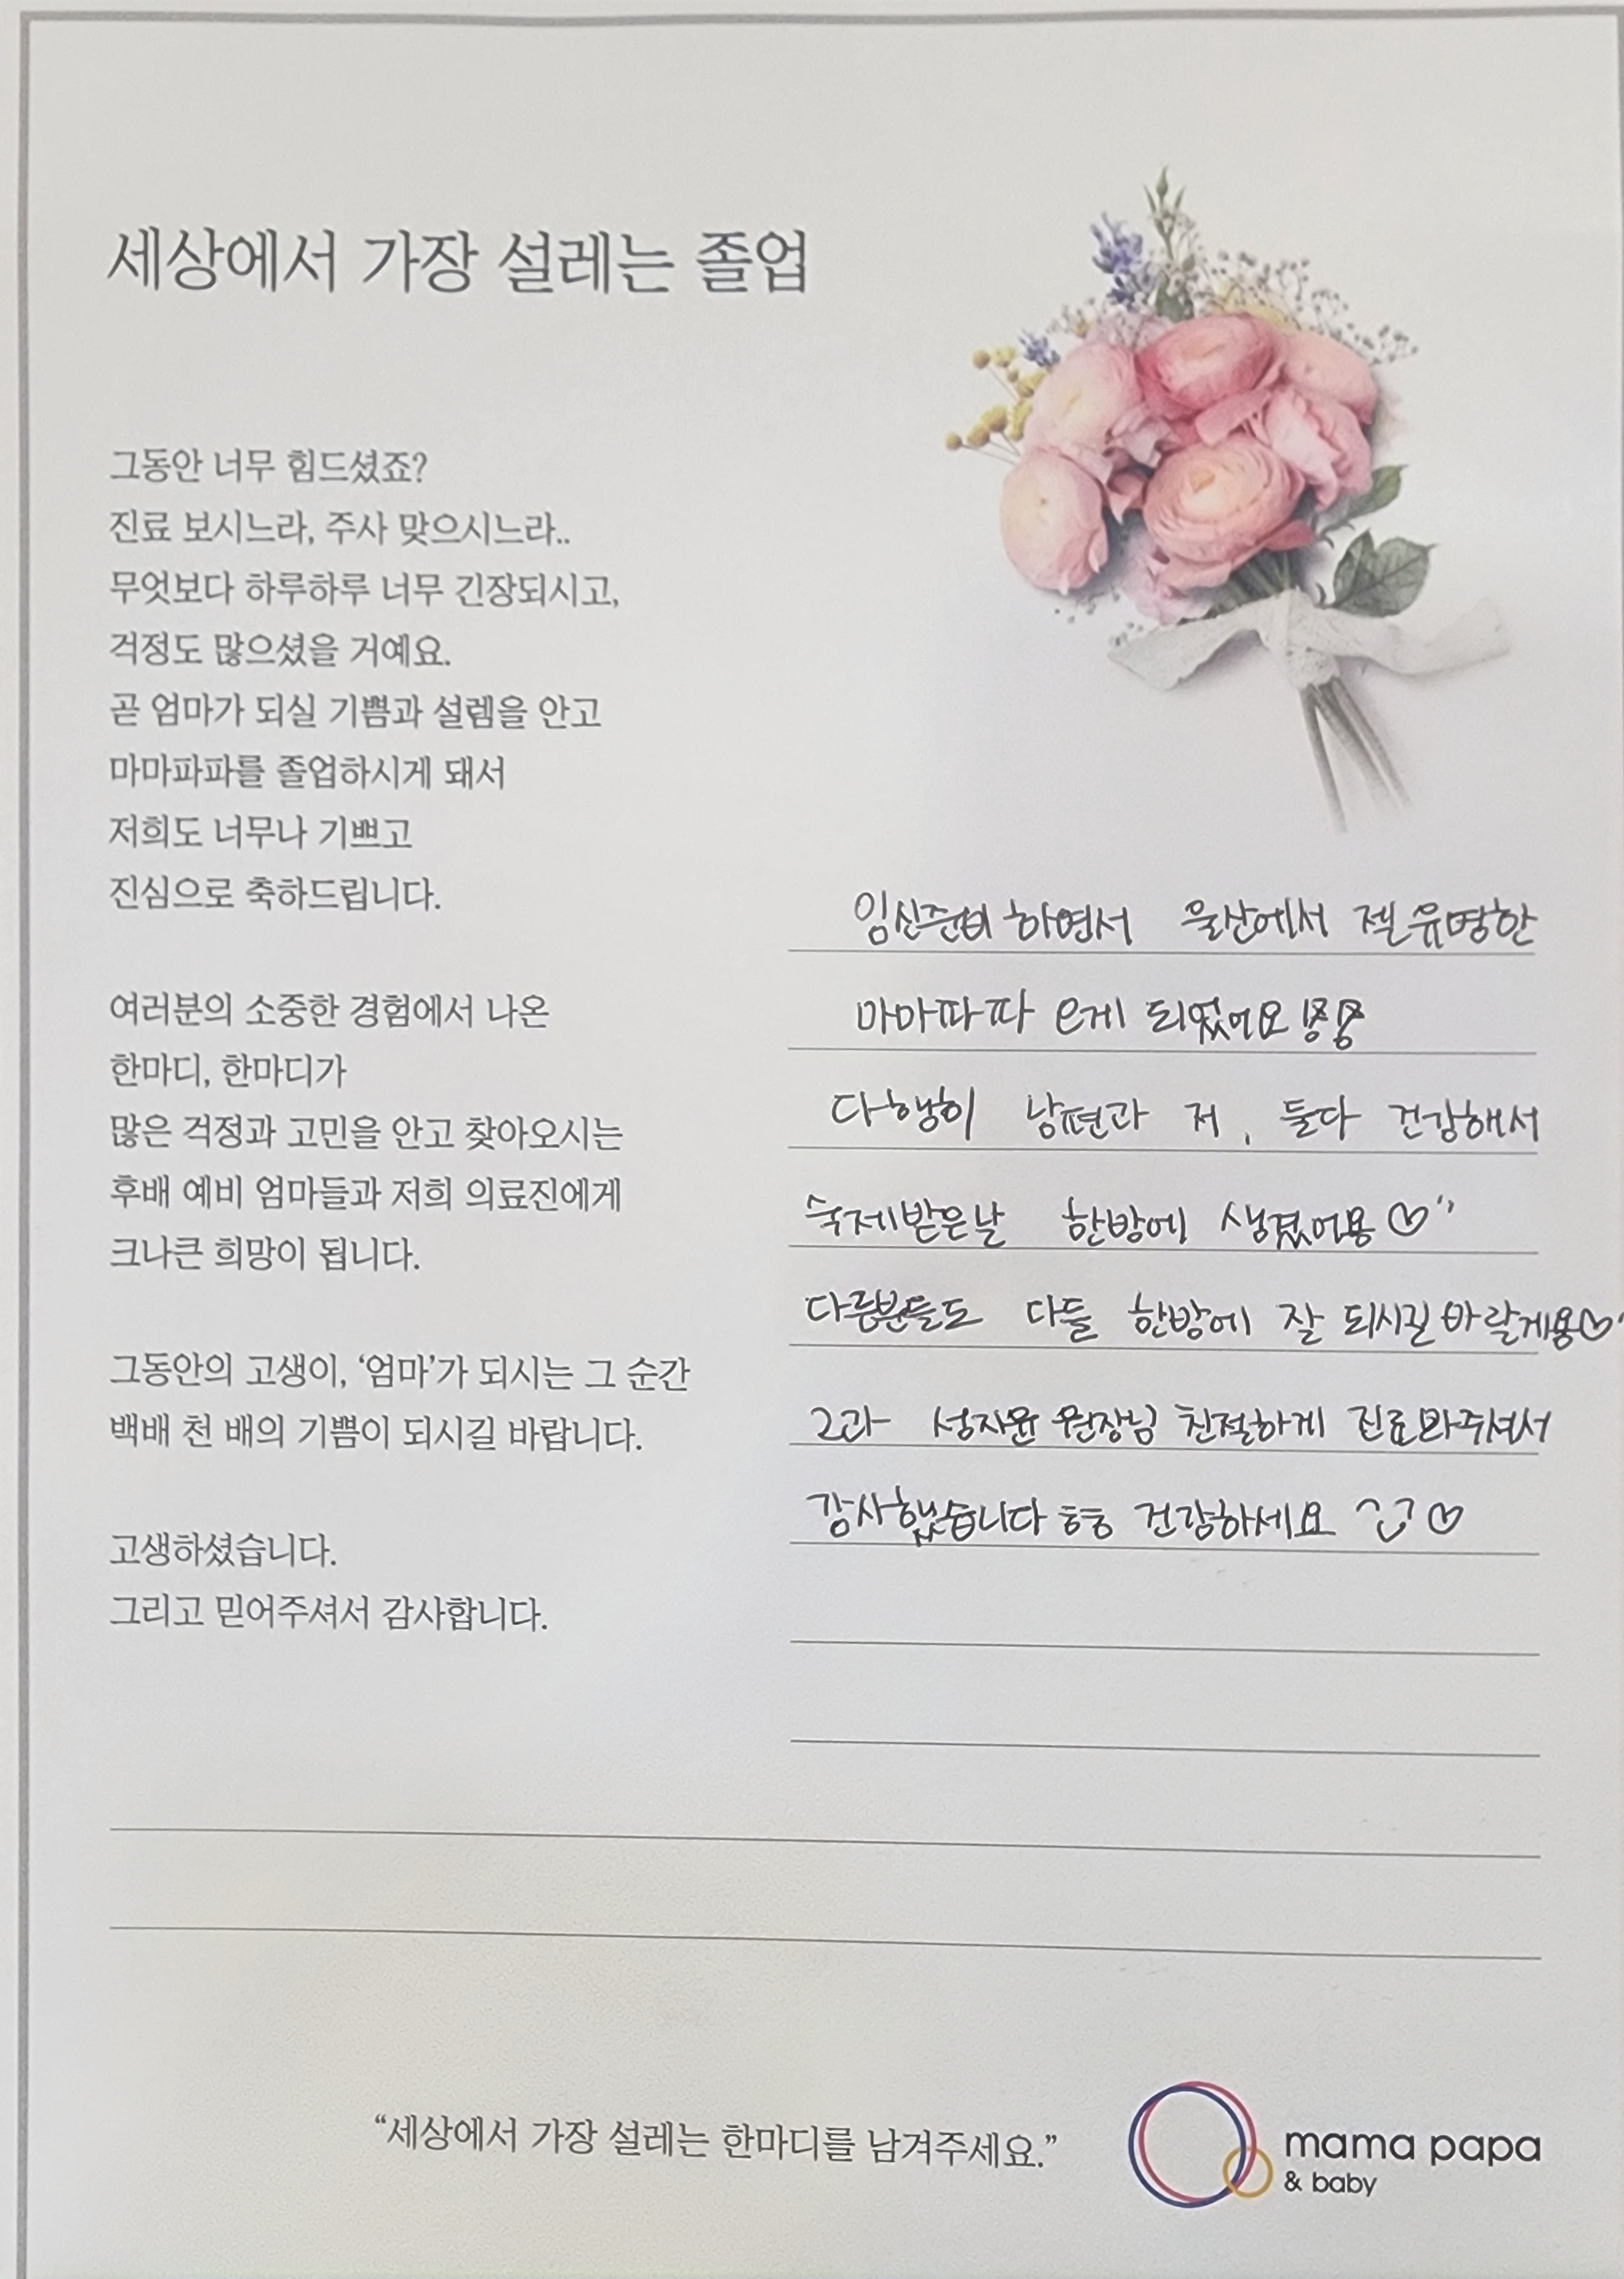 세상에서 가장 설레는 졸업
그동안 너무 힘드셨죠?
진료 보시느라, 주사 맞으시느라..
무엇보다 하루하루 너무 긴장되시고,
걱정도 많으셨을 거예요.
곧 엄마가 되실 기쁨과 설렘을 안고
마마파파를 졸업하시게 돼서
저희도 너무나 기쁘고
진심으로 축하드립니다.
여러분의 소중한 경험에서 나온
한마디, 한마디가
많은 걱정과 고민을 안고 찾아오시는
후배 예비 엄마들과 저희 의료진에게
크나큰 희망이 됩니다.
그동안의 고생이, ‘엄마’가 되시는 그 순간
백배 천 배의 기쁨이 되시길 바랍니다.
고생하셨습니다.
그리고 믿어주셔서 감사합니다.
임신준비 하면서 울산에서 젤 유명한
마마파파 게 되었어요
다행히 남편과 저, 둘다 건강해서
숙제받은날 한방에 생겼어용♡
다른분들도 다들 한방에 잘 되시길 바랄게용♡
2과 성자윤 원장님 친절하게 진료봐주셔서
감사했습니다 ㅎㅎ 건강하세요 ♡
“세상에서 가장 설레는 한마디를 남겨주세요.”
mama papa
& baby